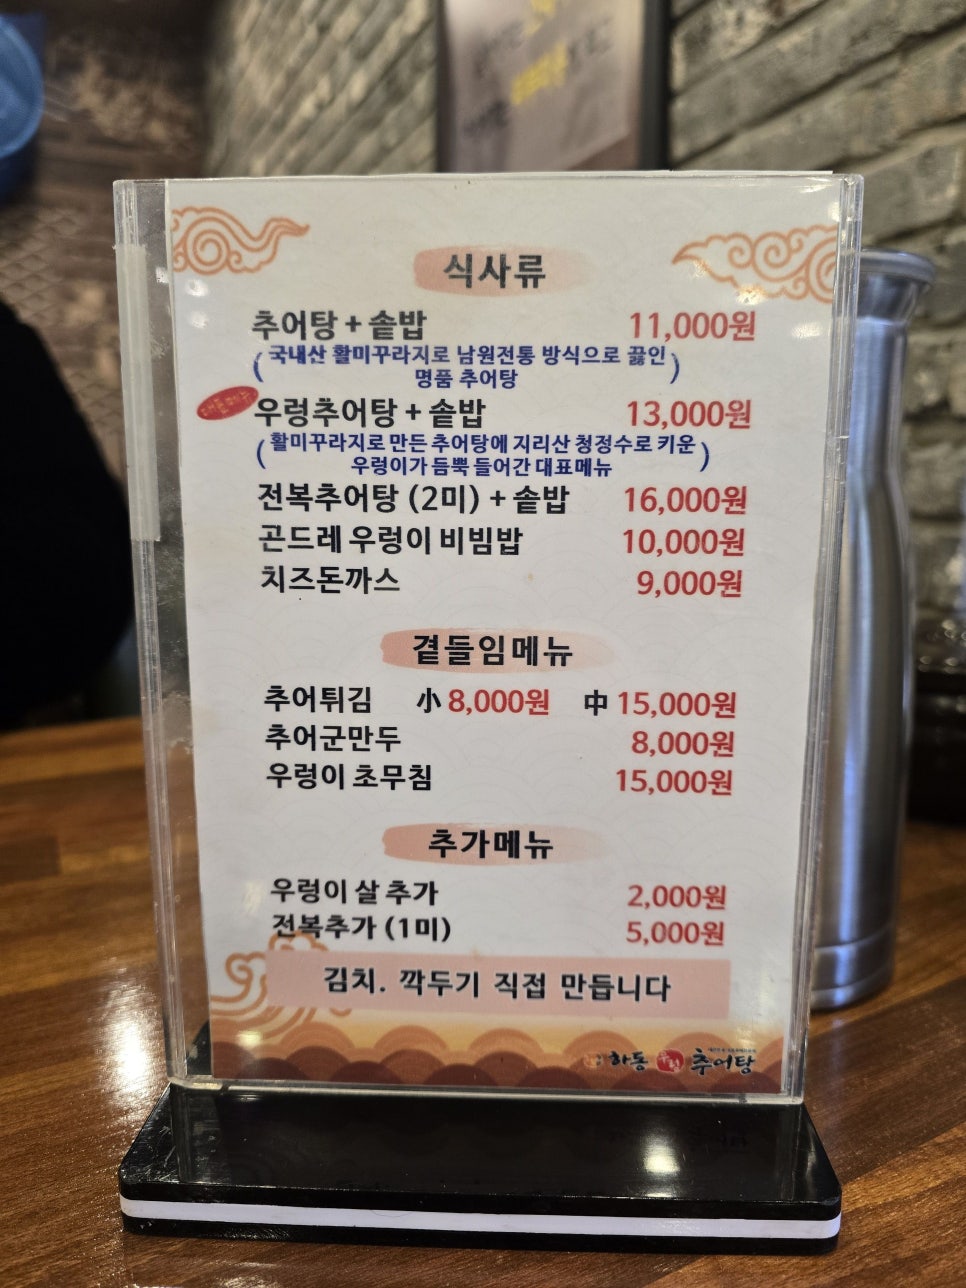 식사류
추어탕 + 솥밥 11,000원
(국내산 활미꾸라지로 남원전통 방식으로 끓인
명품 추어탕)
우렁추어탕 + 솥밥 13,000원
(활미꾸라지로 만든 추어탕에 지리산 청정수로 키운
우렁이가 듬뿍 들어간 대표메뉴)
전복추어탕 (2미) + 솥밥 16,000원
곤드레 우렁이 비빔밥 10,000원
치즈돈까스 9,000원
곁들임메뉴
추어튀김 小 8,000원 中 15,000원
추어군만두 8,000원
우렁이 초무침 15,000원
추가메뉴
우렁이 살 추가 2,000원
전복추가 (1미) 5,000원
김치. 깍두기 직접 만듭니다
하동 우렁 추어탕